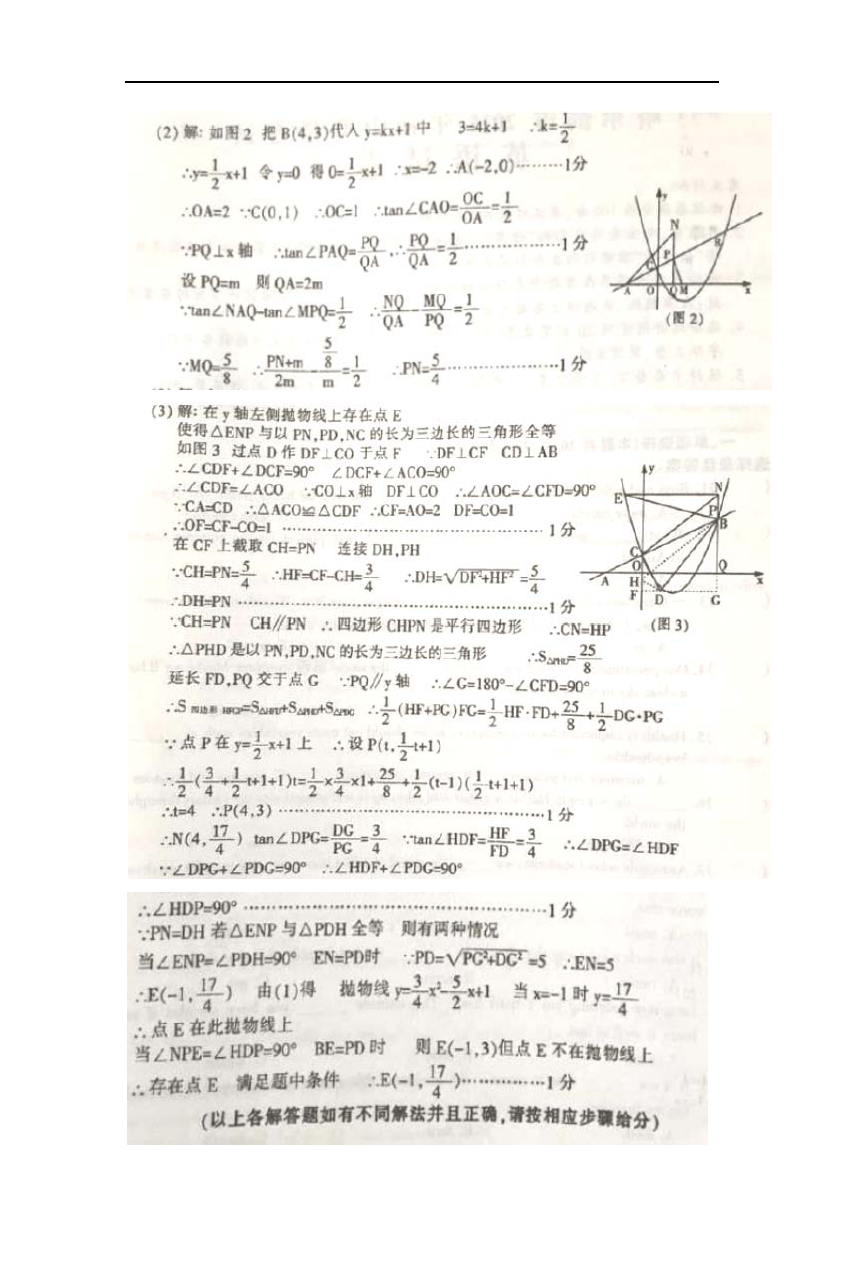 (2)解:如图2 把B(4,3)代入y=kx+1中 3=4k+1 ∴k=1/2
∴y=1/2x+1 令y=0 得0=1/2x+1 ∴x=-2 ∴A(-2,0)………1分
∴OA=2 ∵C(0,1) ∴OC=1 ∴tan∠CAO=OC/OA=1/2
∵PQ⊥x轴 ∴tan∠PAQ=PQ/QA,∴PQ/QA=1/2………………1分
设PQ=m 则QA=2m
∵tan∠NAQ-tan∠MPQ=1/2 ∴NQ/QA-MQ/PQ=1/2
∵MQ=5/8 ∴PN+m/2m-5/8/m=1/2 ∴PN=5/4………………1分
y
N
B
P
C
A O Q M x
(图2)
(3)解:在y轴左侧抛物线上存在点E
使得△ENP与以PN,PD,NC的长为三边长的三角形全等
如图3 过点D作DF⊥CO于点F ∵DF⊥CF CD⊥AB
∴∠CDF+∠DCF=90° ∠DCF+∠ACO=90°
∴∠CDF=∠ACO ∵CO⊥x轴 DF⊥CO ∴∠AOC=∠CFD=90°
∵CA=CD ∴△ACO≌△CDF ∴CF=AO=2 DF=CO=1
∴OF=CF-CO=1 ………………………………1分
在CF上截取CH=PN 连接DH,PH
∵CH=PN=5/4 ∴HF=CF-CH=3/4 ∴DH=√DF²+HF²=5/4
∴DH=PN………………………………………1分
∵CH=PN CH∥PN ∴四边形CHPN是平行四边形 ∴CN=HP
∴△PHD是以PN,PD,NC的长为三边长的三角形 ∴S△PHD=25/8
延长FD,PQ交于点G ∵PQ∥y轴 ∴∠G=180°-∠CFD=90°
∴S四边形HFGP=S△HFD+S△PHD+S△PDG ∴1/2(HF+PG)FG=1/2HF·FD+25/8+1/2DG·PG
∵点P在y=1/2x+1上 ∴设P(t,1/2t+1)
∴1/2(3/4+1/2t+1+1)t=1/2×3/4×1+25/8+1/2(t-1)(1/2t+1+1)
∴t=4 ∴P(4,3)………………………………1分
∴N(4,17/4) tan∠DPG=DG/PG=3/4 ∵tan∠HDF=HF/FD=3/4 ∴∠DPG=∠HDF
∵∠DPG+∠PDG=90° ∴∠HDF+∠PDG=90°
y
E N
P
B
C
O Q
A H x
F D G
(图3)
∴∠HDP=90°………………………………1分
∵PN=DH 若△ENP与△PDH全等 则有两种情况
当∠ENP=∠PDH=90° EN=PD时 ∵PD=√PG²+DG²=5 ∴EN=5
∴E(-1,17/4) 由(1)得 抛物线y=3/4x²-5/2x+1 当x=-1时y=17/4
∴点E在此抛物线上
当∠NPE=∠HDP=90° BE=PD时 则E(-1,3)但点E不在抛物线上
∴存在点E 满足题中条件 ∴E(-1,17/4)……………1分
(以上各解答题如有不同解法并且正确,请按相应步骤给分)